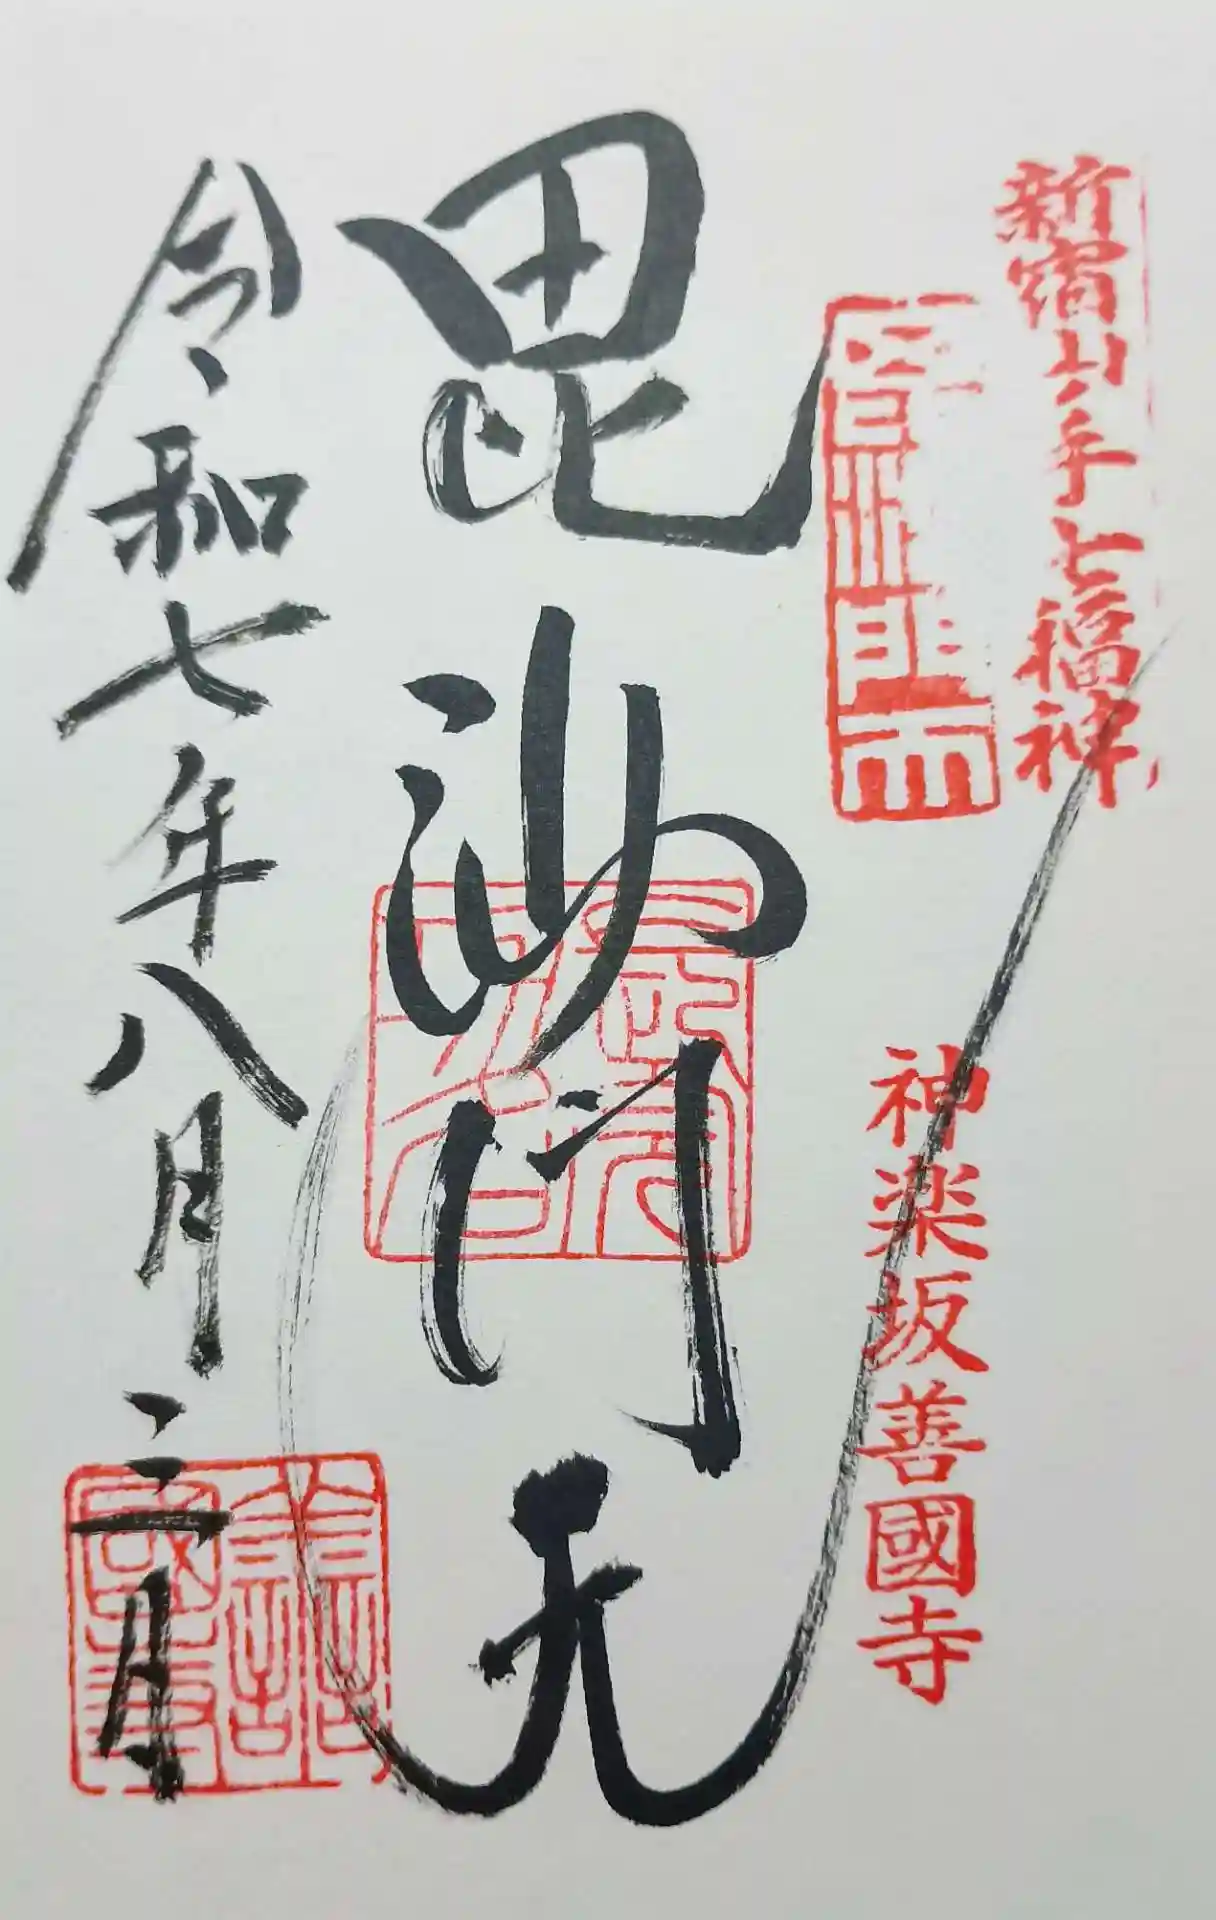 新宿山ノ手七福神
神楽坂善國寺
毘沙門天
令和七年八月三日
善國寺